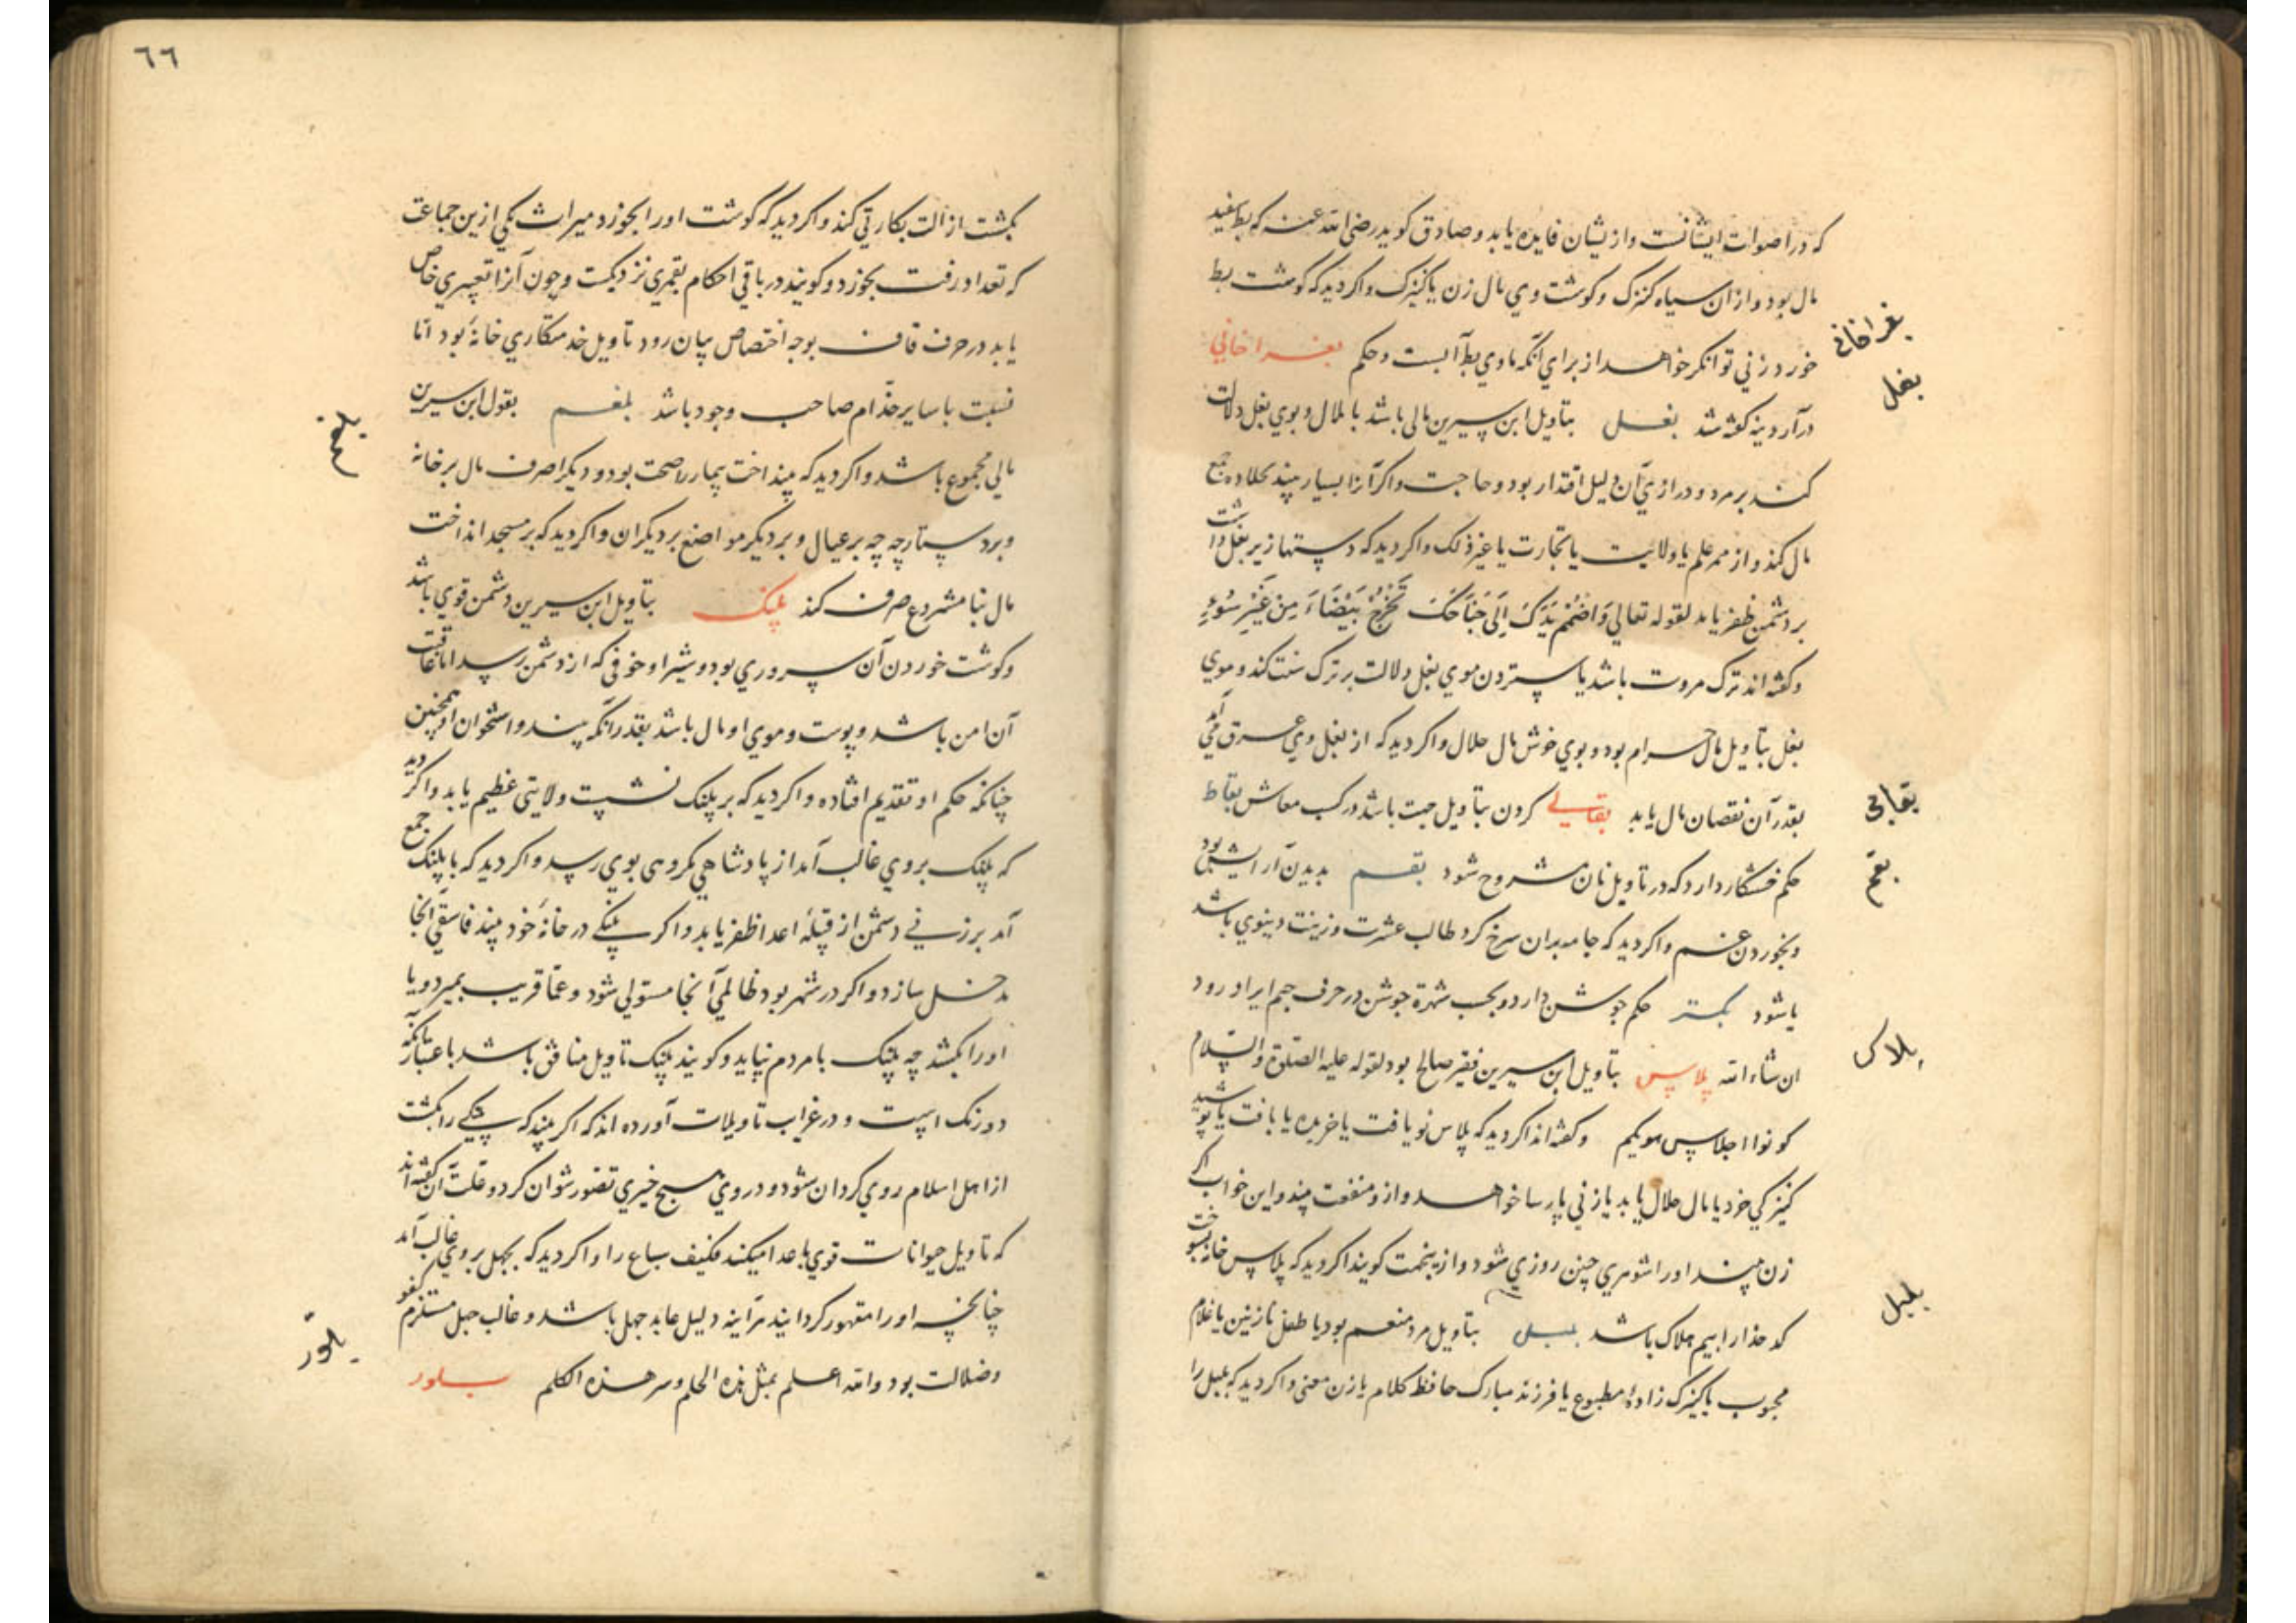 که در اصوات ایشانست وازیشان فایده یابد وصادق کوید رضی الله عنه که بط سفید
مال بود وازان سیاه کنزک وکوشت وی مال زن یا کنیزک واکر دید که کوشت بط
خورد زنی توانکر خواهد از برای آنکه ماوی بط آبست وحکم بغراخانی
بغراخانی
در آردینه کفته شد بغل بتاویل ابن سیرین مالی باشد با ملال وبوی بغل دلالت
بغل
کند بر مرد ودرازی آن دلیل اقتدار بود وحاجت واکر آنرا بسیار بیند جمع
مال کند واز ممر علم یا ولایت یا تجارت یا غیر ذلک واکر دید که دستها زیر بغل داشت
بر دشمن ظفر یابد لقوله تعالی وَاضْمُمْ یَدَکَ اِلَی جَنَاحِکَ تَخْرُجْ بَیْضَاءَ مِنْ غَیْرِ سُوءٍ
وکفته اند ترک مروت باشد یا ستردن موی بغل دلالت بر ترک سنت کند وموی
بغل بتاویل مال حرام بود وبوی خوش مال حلال واکر دید که از بغل وی عرق می آمد
بقدر آن نقصان مال یابد بقالی کردن بتاویل جهت باشد در کسب معاش بقاط
بقالی
حکم خشکار دارد که در تاویل نان مشروح شود بقم بدیدن آرایش بود
بقم
وبخوردن غم واکر دید که جامه بدان سرخ کرد طالب عشرت وزینت دینوی باشد
یا شود بکتر حکم جوشن دارد وبحسب شهرة جوشن در حرف جیم ایراد رود
ان شاء الله پلاس بتاویل ابن سیرین فقیر صالح بود لقوله علیه الصلوة والسلام
پلاس
کونوا احلاس بیوتکم وکفته اند اکر دید که پلاس نو یافت یا خریده یا بافت یا پوشید
کنیزکی خرد یا مال حلال یابد یا زنی پارسا خواهد وازو منفعت بیند واین خواب اکر
زن بیند اورا شوهری چنین روزی شود وازینجهت کویند اکر دید که پلاس خانه بسوخت
کدخدا را بیم هلاک باشد بلبل بتاویل مرد منعم بود یا طفل نازنین یا غلام
بلبل
محبوب یا کنیزک زادهٔ مطبوع یا فرزند مبارک حافظ کلام یا زن مغنی واکر دید که بلبل را
٦٦
بکشت ازالت بکارتی کند واکر دید که کوشت اورا بخوزد میراث یکی ازین جماعت
که تعداد رفت بخوزد وکویند در باقی احکام بقمری نزدیکست وچون آنرا تعبیری خاص
یابد در حرف قاف بوجه اختصاص بیان رود تاویل خدمتکاری خانهٔ بود اما
نسبت با سایر خدام صاحب وجود باشد بلغم بقول ابن سیرین
بلغم
مالی مجموع باشد واکر دید که بینداخت بیمار را صحت بود ودیکرا صرف مال بر خانه
وبر دستارچه چه بر عیال وبر دیکر مواضع بر دیکران واکر دید که بر مسجد انداخت
مال بنا مشروع صرف کند پلنک بتاویل ابن سیرین دشمن قوی باشد
وکوشت خوردن آن سروری بود وشیر او خوفی که از دشمن رسد اما عاقبت
آن امن باشد وپوست وموی او مال باشد بقدر آنکه بیند واستخوان او همچنین
چنانکه حکم او تقدیم افتاده واکر دید که بر پلنک نشست ولایتی عظیم یابد واکر دید
که پلنک بر وی غالب آمد از پادشاهی مکروهی بوی رسد واکر دید که با پلنک جمع
آمد بر زنی دشمن از قبیلهٔ اعدا ظفر یابد واکر پلنکی در خانهٔ خود بیند فاسقی آنجا
مدخل سازد واکر در شهر بود ظالمی آنجا مستولی شود وعما قریب بمیرد ویا
اورا بکشند چه پلنک با مردم نپاید وکویند پلنک تاویل منافق باشد باعتبار آنکه
دورنک است ودر غرایب تاویلات آورده اند که اکر بیند که پلنکی را بکشت
از اهل اسلام روی کردان شود ودر وی هیچ خیری تصور نتوان کرد وعلت آن کفته اند
که تاویل حیوانات قوی باعدا میکنند فکیف سباع را واکر دید که بجهل بر وی غالب آمد
چنانچه اورا مقهور کردانید هرآینه دلیل عابد جهل باشد وغالب جهل مستلزم کفر
وضلالت بود والله اعلم بمثل هذه الحلم وسر هذه الکلم بلور
بلور